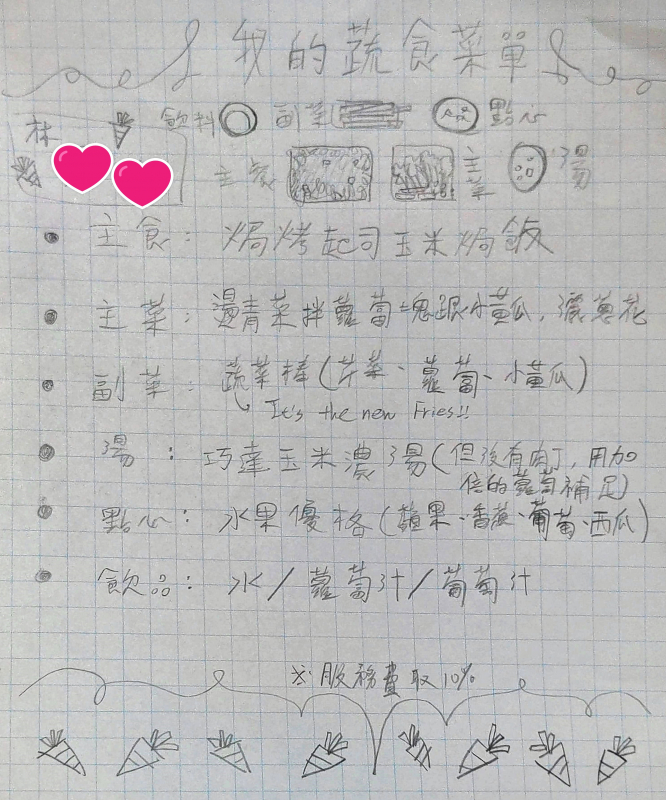 我的蔬食菜單
林
飲料 副菜 點心
主食 主菜 湯
主食：焗烤起司玉米焗飯
主菜：燙青菜拌蘿蔔塊跟小黃瓜，灑蔥花
副菜：蔬菜棒(芹菜、蘿蔔、小黃瓜)
It's the new Fries!!
湯：巧達玉米濃湯(但沒有肉丁，用加
倍的蘿蔔補足)
點心：水果優格(蘋果、香蕉、葡萄、西瓜)
飲品：水/蘿蔔汁/葡萄汁
※：服務費取10%